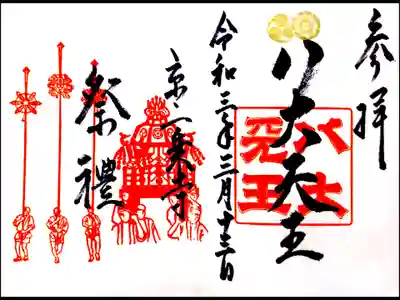 参拝
八大天王
八大
天王
令和三年三月十三日
京一乗寺
祭禮